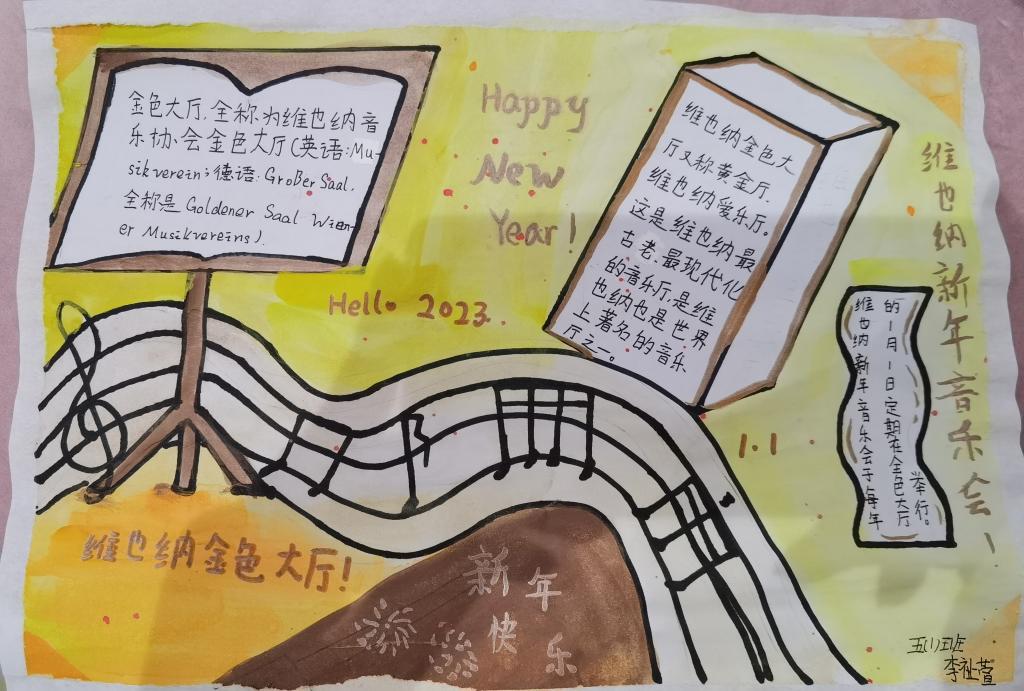 金色大厅,全称为维也纳音
乐协会金色大厅(英语:Mu-
sikverein;德语:Großer Saal,
全称是Goldener Saal Wien-
er Musikvereins).
Happy
New
Year!
Hello 2023.
维也纳金色大
厅又称黄金厅.
维也纳爱乐厅。
这是维也纳最
古老.最现代化
的音乐厅,是维
也纳也是世界
上著名的音乐
厅之一。
维也纳新年音乐会!
维也纳新年音乐会于每年
的1月1日定期在金色大厅
举行。
1.1
维也纳金色大厅!
新年
快乐
五(1)班
李祉萱